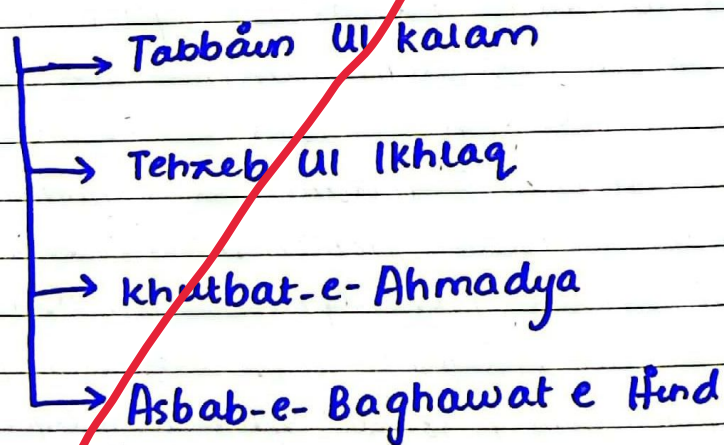 Tabbåun Ul kalam
Tehzeb Ul Ikhlaq
khutbat-e-Ahmadya
Asbab-e-Baghawat e Hind